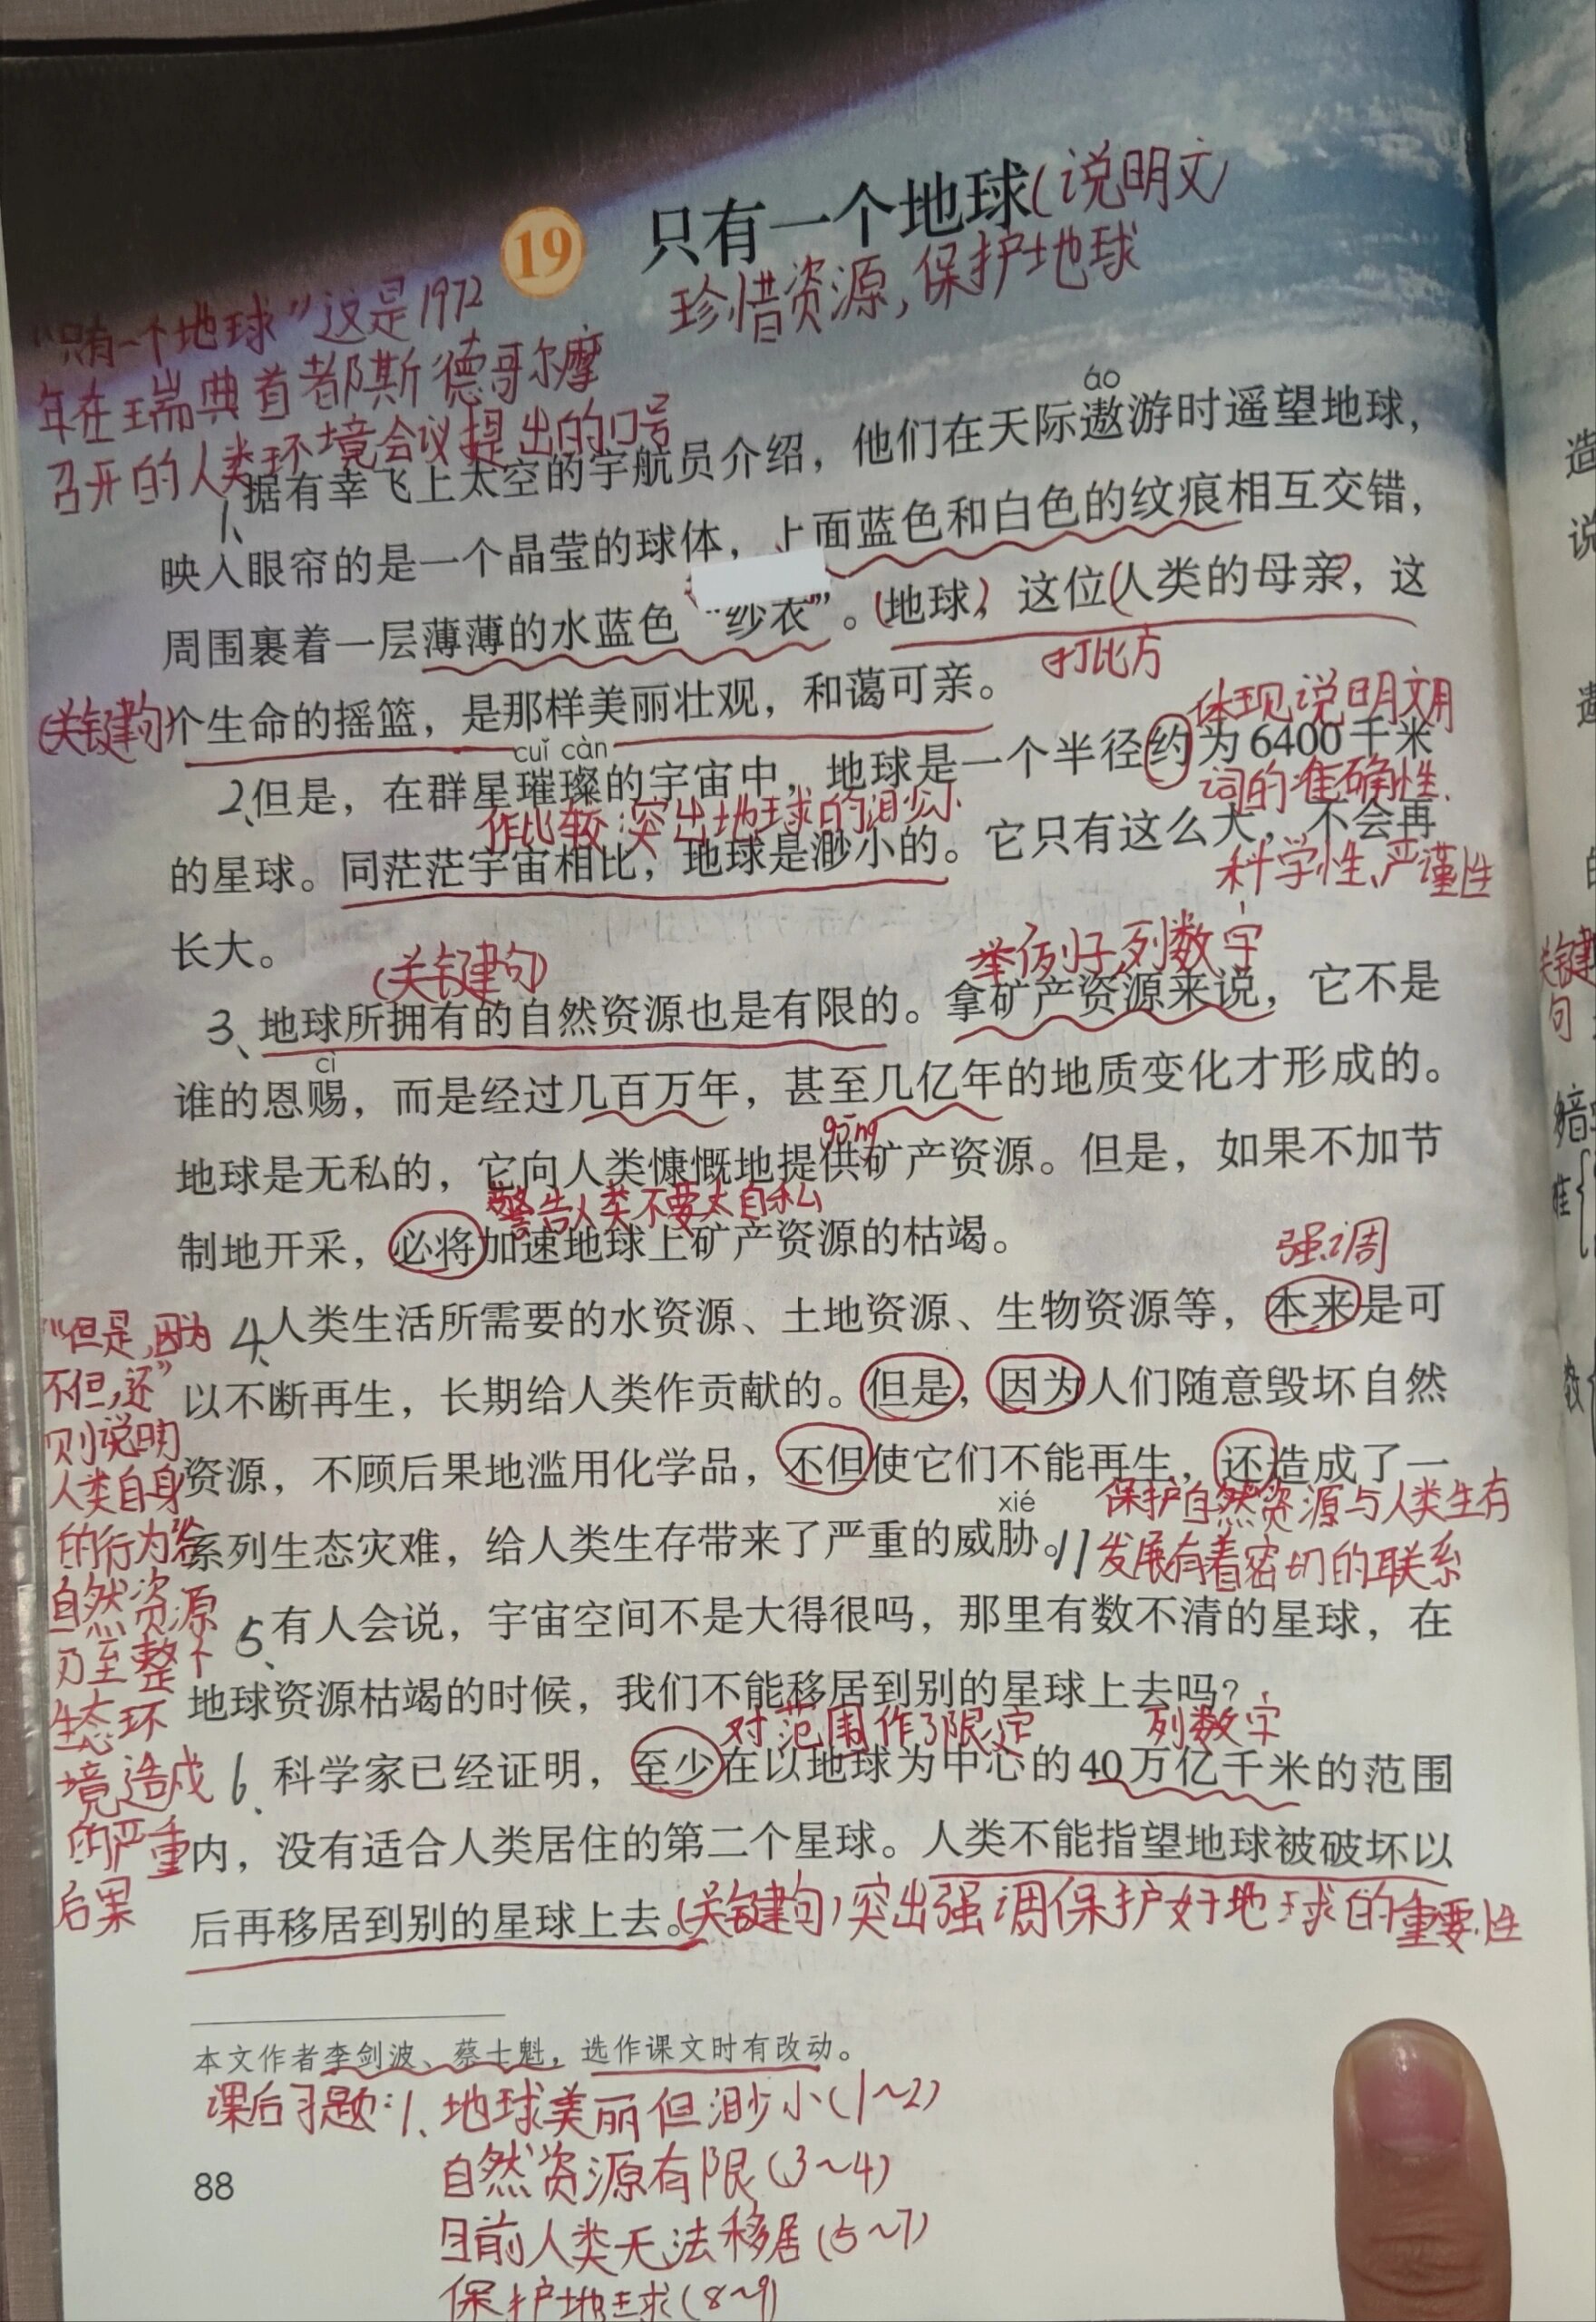 19 只有一个地球(说明文)
珍惜资源,保护地球
“只有一个地球”这是1972
年在瑞典首都斯德哥尔摩
召开的人类环境会议提出的口号
áo
1、据有幸飞上太空的宇航员介绍，他们在天际遨游时遥望地球，
映入眼帘的是一个晶莹的球体，上面蓝色和白色的纹痕相互交错，
周围裹着一层薄薄的水蓝色“纱衣”。(地球)，这位(人类的母亲)，这
打比方
(关键句)个生命的摇篮，是那样美丽壮观，和蔼可亲。
体现说明文用
cuǐ càn
2、但是，在群星璀璨的宇宙中，地球是一个半径约为6400千米
作比较:突出地球的渺小
词的准确性、
的星球。同茫茫宇宙相比，地球是渺小的。它只有这么大，不会再
科学性、严谨性
长大。
(关键句)
举例子,列数字
3、地球所拥有的自然资源也是有限的。拿矿产资源来说，它不是
cì
谁的恩赐，而是经过几百万年，甚至几亿年的地质变化才形成的。
gōng
地球是无私的，它向人类慷慨地提供矿产资源。但是，如果不加节
警告人类不要太自私
制地开采，必将加速地球上矿产资源的枯竭。
强调
4、人类生活所需要的水资源、土地资源、生物资源等，本来是可
以不断再生，长期给人类作贡献的。但是，因为人们随意毁坏自然
资源，不顾后果地滥用化学品，不但使它们不能再生，还造成了一
xié
系列生态灾难，给人类生存带来了严重的威胁。//
保护自然资源与人类生存
发展有着密切的联系
“但是,因为
不但,还”
则说明
人类自身
的行为给
自然资源
乃至整个
生态环
境造成
的严重
后果
5、有人会说，宇宙空间不是大得很吗，那里有数不清的星球，在
地球资源枯竭的时候，我们不能移居到别的星球上去吗？
对范围作了限定
列数字
6、科学家已经证明，至少在以地球为中心的40万亿千米的范围
内，没有适合人类居住的第二个星球。人类不能指望地球被破坏以
后再移居到别的星球上去。(关键句)突出强调保护好地球的重要性
本文作者李剑波、蔡士魁，选作课文时有改动。
课后习题:1、地球美丽但渺小(1~2)
自然资源有限(3~4)
目前人类无法移居(5~7)
保护地球(8~9)
88
造
说
关键
句